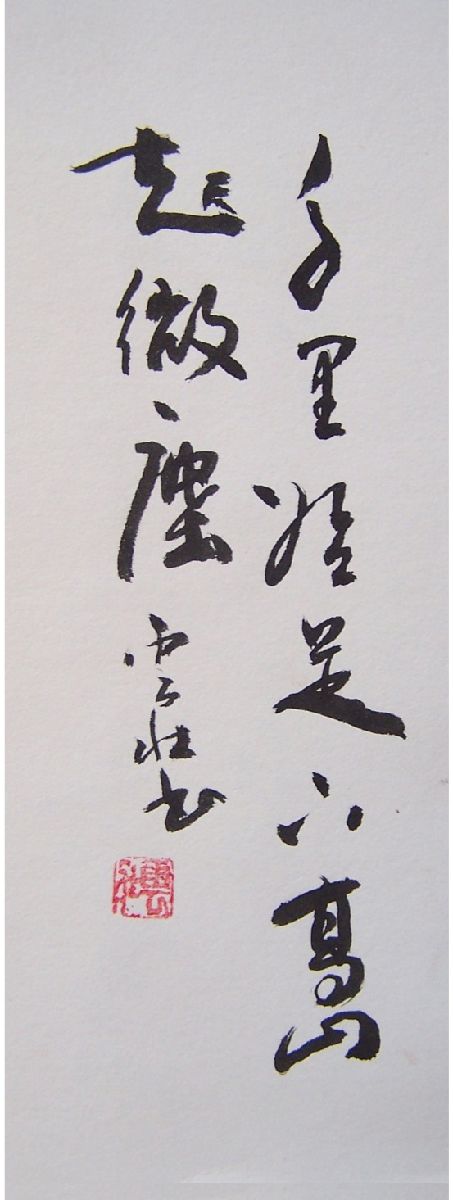 千里始足下高山
起微塵